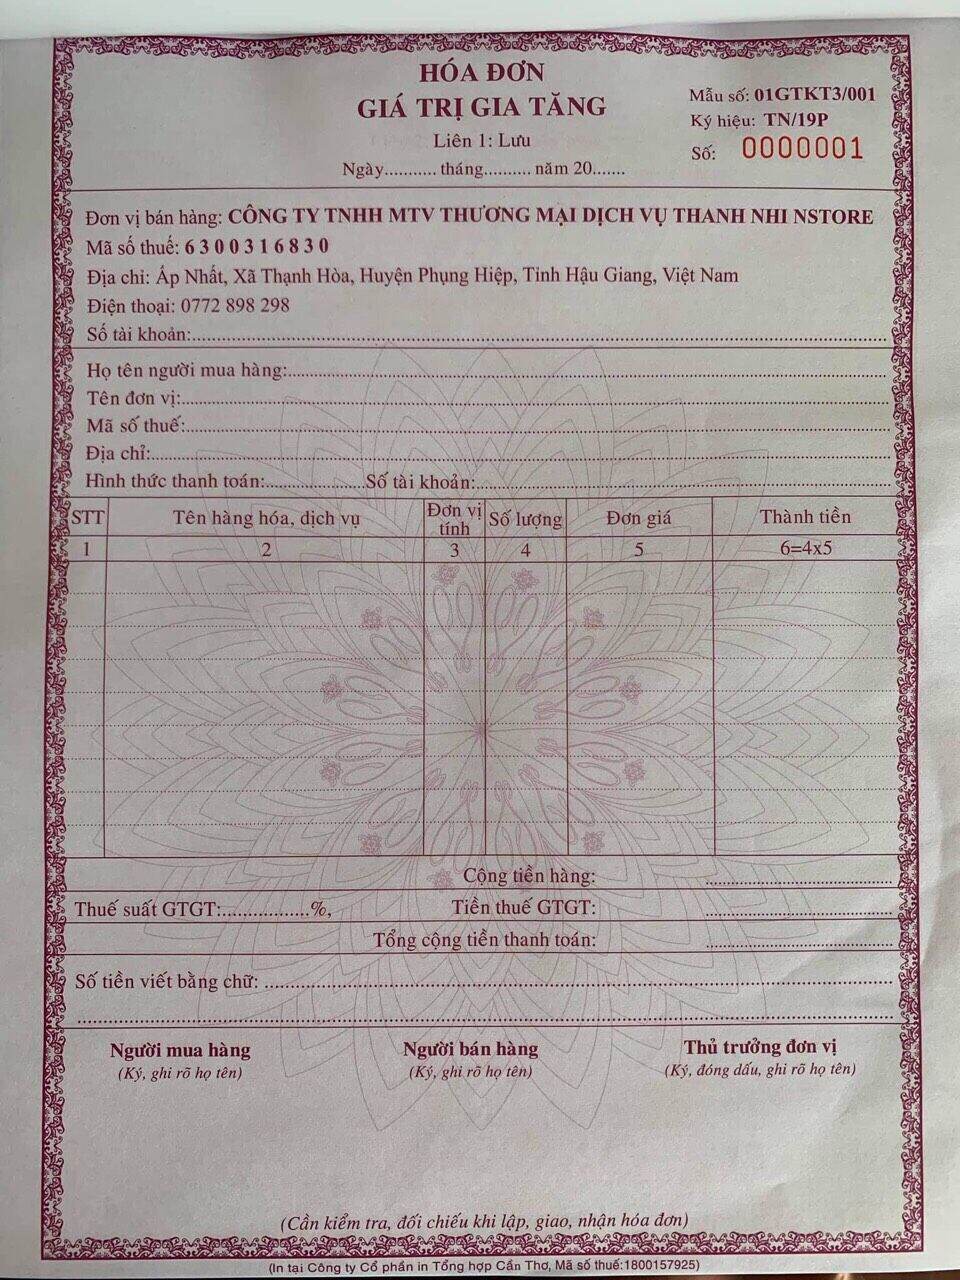 HÓA ĐƠN
GIÁ TRỊ GIA TĂNG
Liên 1: Lưu
Ngày........... tháng.......... năm 20.......
Mẫu số: 01GTKT3/001
Ký hiệu: TN/19P
Số: 0000001
Đơn vị bán hàng: CÔNG TY TNHH MTV THƯƠNG MẠI DỊCH VỤ THANH NHI NSTORE
Mã số thuế: 6300316830
Địa chỉ: Ấp Nhất, Xã Thạnh Hòa, Huyện Phụng Hiệp, Tỉnh Hậu Giang, Việt Nam
Điện thoại: 0772 898 298
Số tài khoản:
Họ tên người mua hàng:
Tên đơn vị:
Mã số thuế:
Địa chỉ:
Hình thức thanh toán:.................... Số tài khoản:
STT Tên hàng hóa, dịch vụ Đơn vị tính Số lượng Đơn giá Thành tiền
1 2 3 4 5 6=4x5
Cộng tiền hàng:
Thuế suất GTGT:.................%, Tiền thuế GTGT:
Tổng cộng tiền thanh toán:
Số tiền viết bằng chữ:
Người mua hàng Người bán hàng Thủ trưởng đơn vị
(Ký, ghi rõ họ tên) (Ký, ghi rõ họ tên) (Ký, đóng dấu, ghi rõ họ tên)
(Cần kiểm tra, đối chiếu khi lập, giao, nhận hóa đơn)
(In tại Công ty Cổ phần in Tổng hợp Cần Thơ, Mã số thuế:1800157925)